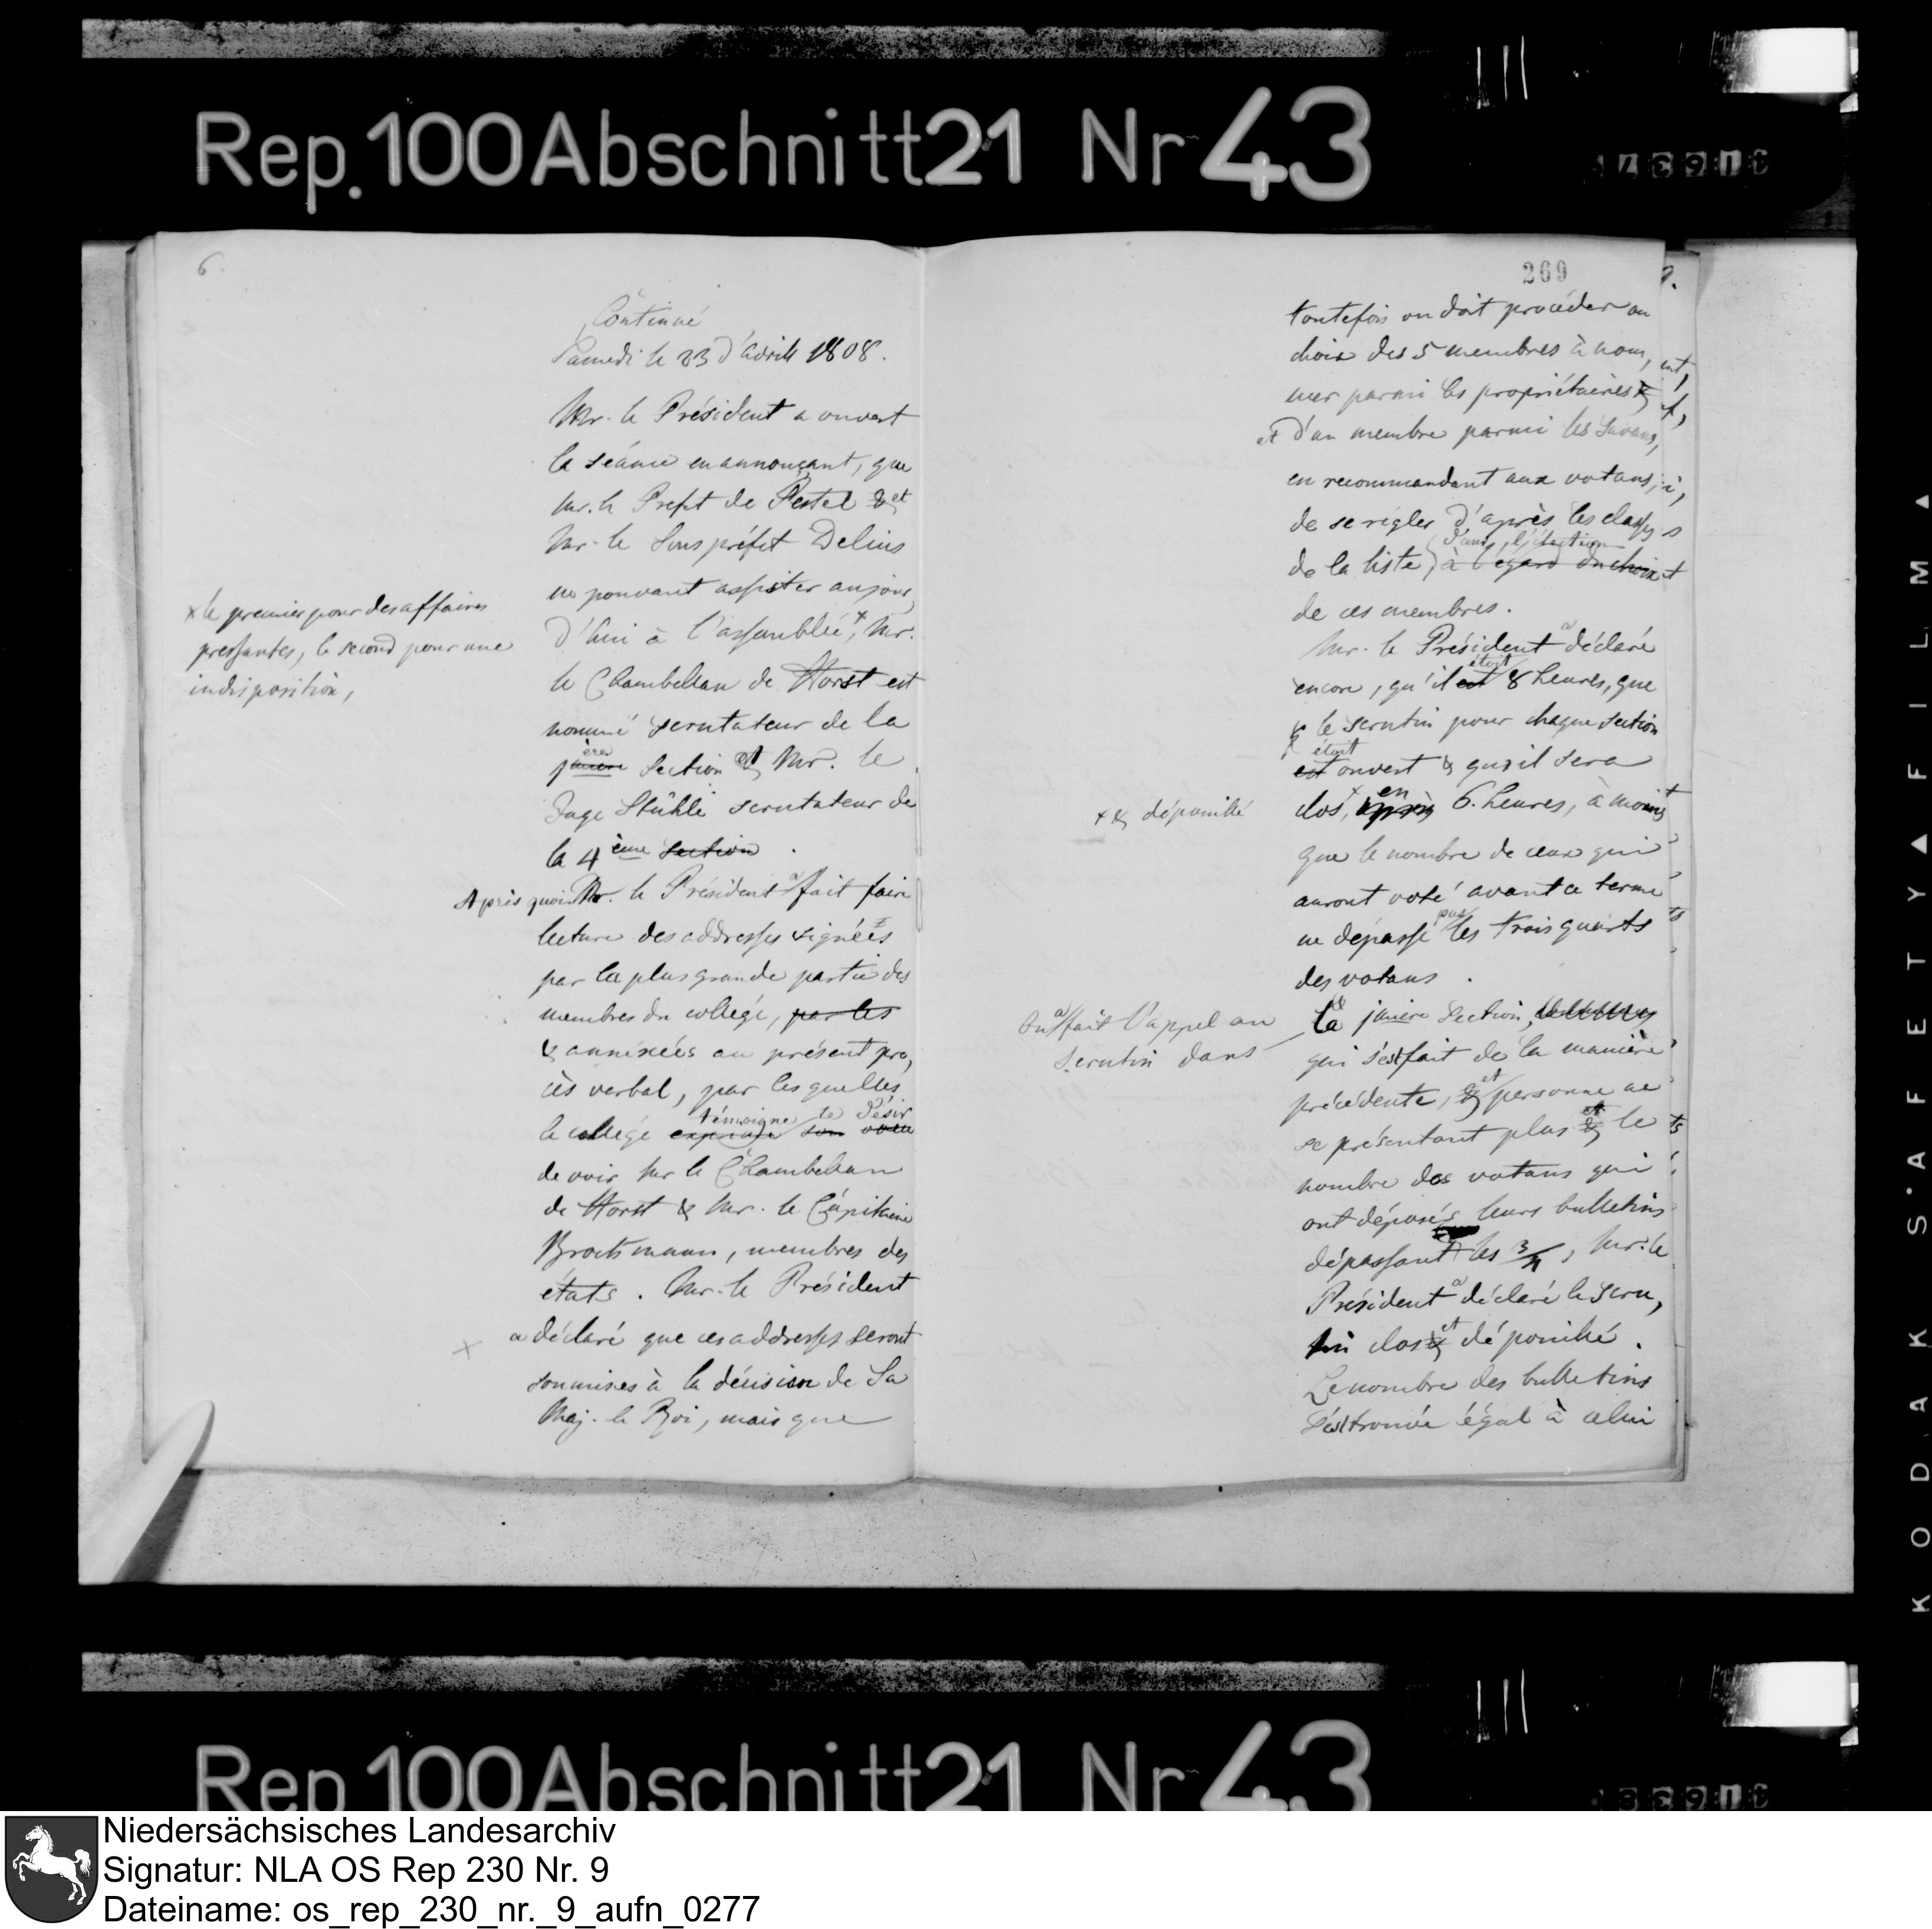 Rep. 100 Abschnitt 21 Nr 43
6
Continué
Samedi le 23 d'Avril 1808.
Mr. le Président a ouvert
la séance en annonçant, que
Mr. le Prefet de Pestel & et
Mr. le Sous préfet Delius
ne pouvant assister aujour,
d'hui à l'assemblée, × Mr.
× le premier pour des affaires
pressantes, le second pour une
indisposition,
le Chambellan de Horst est
nommé scrutateur de la
section et Mr. le
Juge Stühle scrutateur de
la 4 ème section.
Après quoi Mr. le Président a fait faire
lecture des addresses signées
par la plus grande partie des
membres du collège, par les
& annexées au présent pro,
cès verbal, par lesquelles
témoigne le désir
le collège exprime son voeu
de voir Mr le Chambellan
de Horst & Mr. le Capitaine
Broctsmann, membres des
états. Mr. le Président
× a déclaré que ces addresses seront
soumises à la décision de Sa
Maj. le Roi, mais que
269
toutefois on doit procéder au
choix des 5 membres à nom,
mer parmi les propriétaires &
et d'un membre parmi les savans,
en recommandant aux votans,
de se régler d'après les classes
dans l'élection
de la liste, à l'égard du choix
de ces membres.
Mr. le Président a déclaré
étoit
encore, qu'il est 8 heures, que
le scrutin pour chaque section
étoit
est ouvert & qu'il sera
en
clos, × après 6. heures, à moins
× & dépouillé
que le nombre de ceux qui
auront voté avant ce terme
pas
ne dépasse les trois quarts
des votans.
On a fait l'appel au
scrutin dans
la 1mière section,
qui s'est fait de la manière
précédente, & et personne ne
se présentant plus & et le
nombre des votans qui
ont déposés leurs bulletins
dépassant les 3/4, Mr. le
Président a déclaré le scru,
tin clos & et dépouillé.
Le nombre des bulletins
s'est trouvé égal à celui
KODAK SAFETY FILM
Rep. 100 Abschnitt 21 Nr 43
Niedersächsisches Landesarchiv
Signatur: NLA OS Rep 230 Nr. 9
Dateiname: os_rep_230_nr._9_aufn_0277